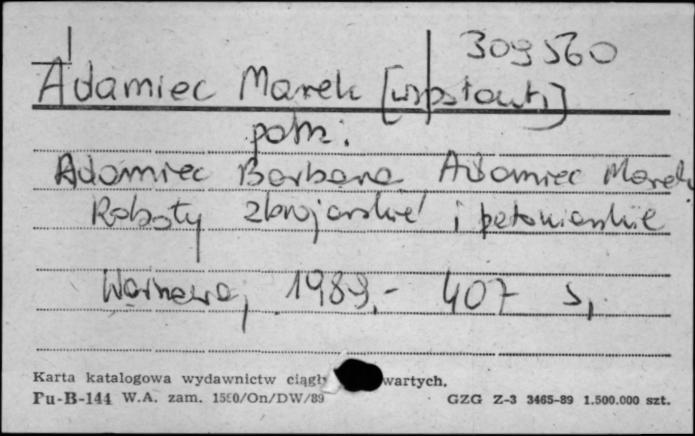 309560
Adamiec Marek [współaut.]
patrz:
Adamiec Barbara Adamiec Marek
Roboty zbrojarskie i betoniarskie
Warszawa, 1989,- 407 s,
Karta katalogowa wydawnictw ciągły wartych.
Pu-B-144 W.A. zam. 1550/On/DW/89 GZG Z-3 3465-89 1.500.000 szt.